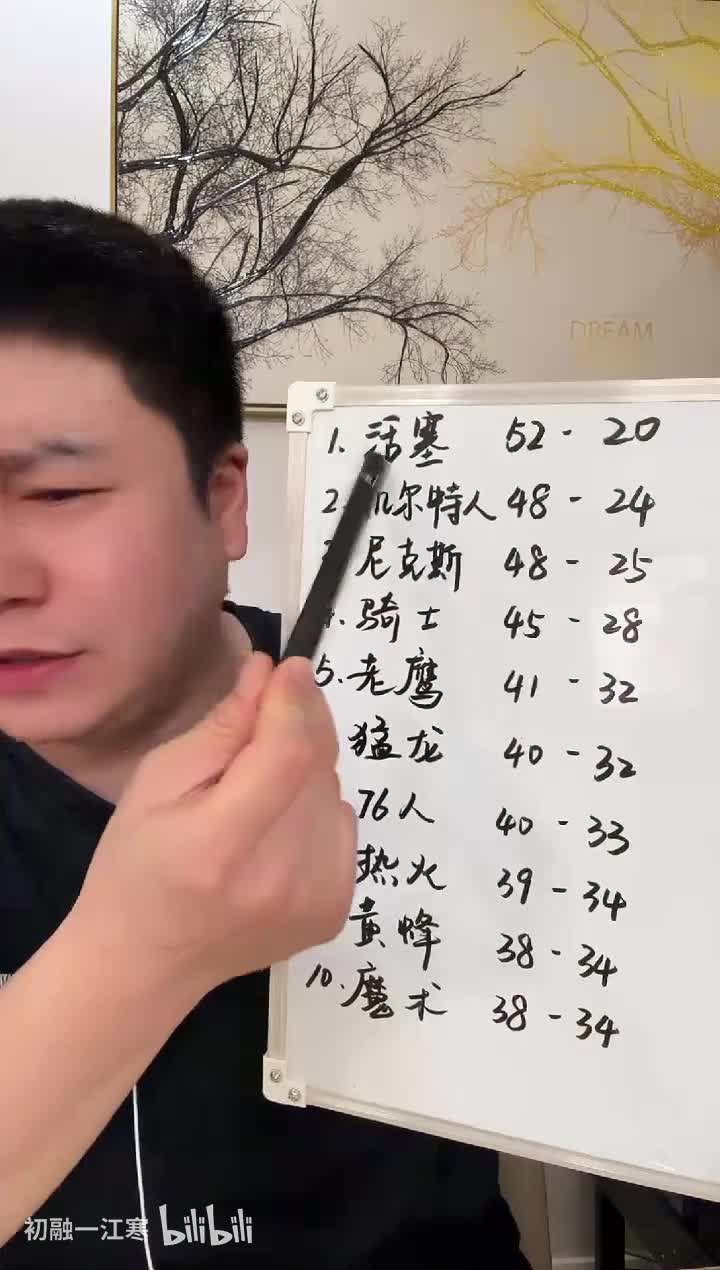 DREAM
1. 活塞 52 - 20
2. 凯尔特人 48 - 24
尼克斯 48 - 25
骑士 45 - 28
5. 老鹰 41 - 32
猛龙 40 - 32
76人 40 - 33
热火 39 - 34
黄蜂 38 - 34
10. 魔术 38 - 34
初融一江寒 bilibili